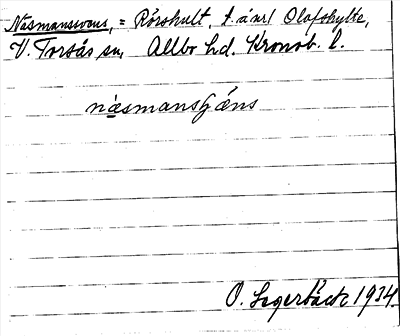 Näsmanswous, = Rörshult, t. ä. nr 1 Olofshylte,
V. Torsås sn, Allbo hd. Kronob. l.
näsmansgäns
O. Lagerbäck 1934.